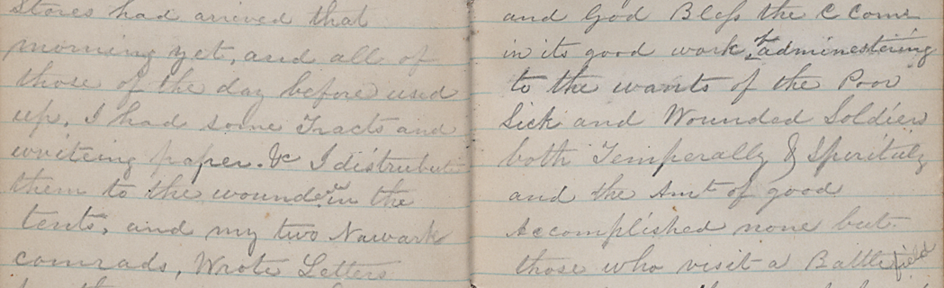 Stores had arived that
morning yet, and all of
those of the day before used
up. I had some Tracts and
writeing paper. &c I distribut
them to the wounded in the
tents, and my two Nawark
comrads, Wrote Letters
and God Bless the C Com
in its good work, of adminestering
to the wants of the Poor
Sick and Wounded Soldiers
both Temperally & Spiritully
and the Amt of good
Accomplished none but
those who visit a Battlefield